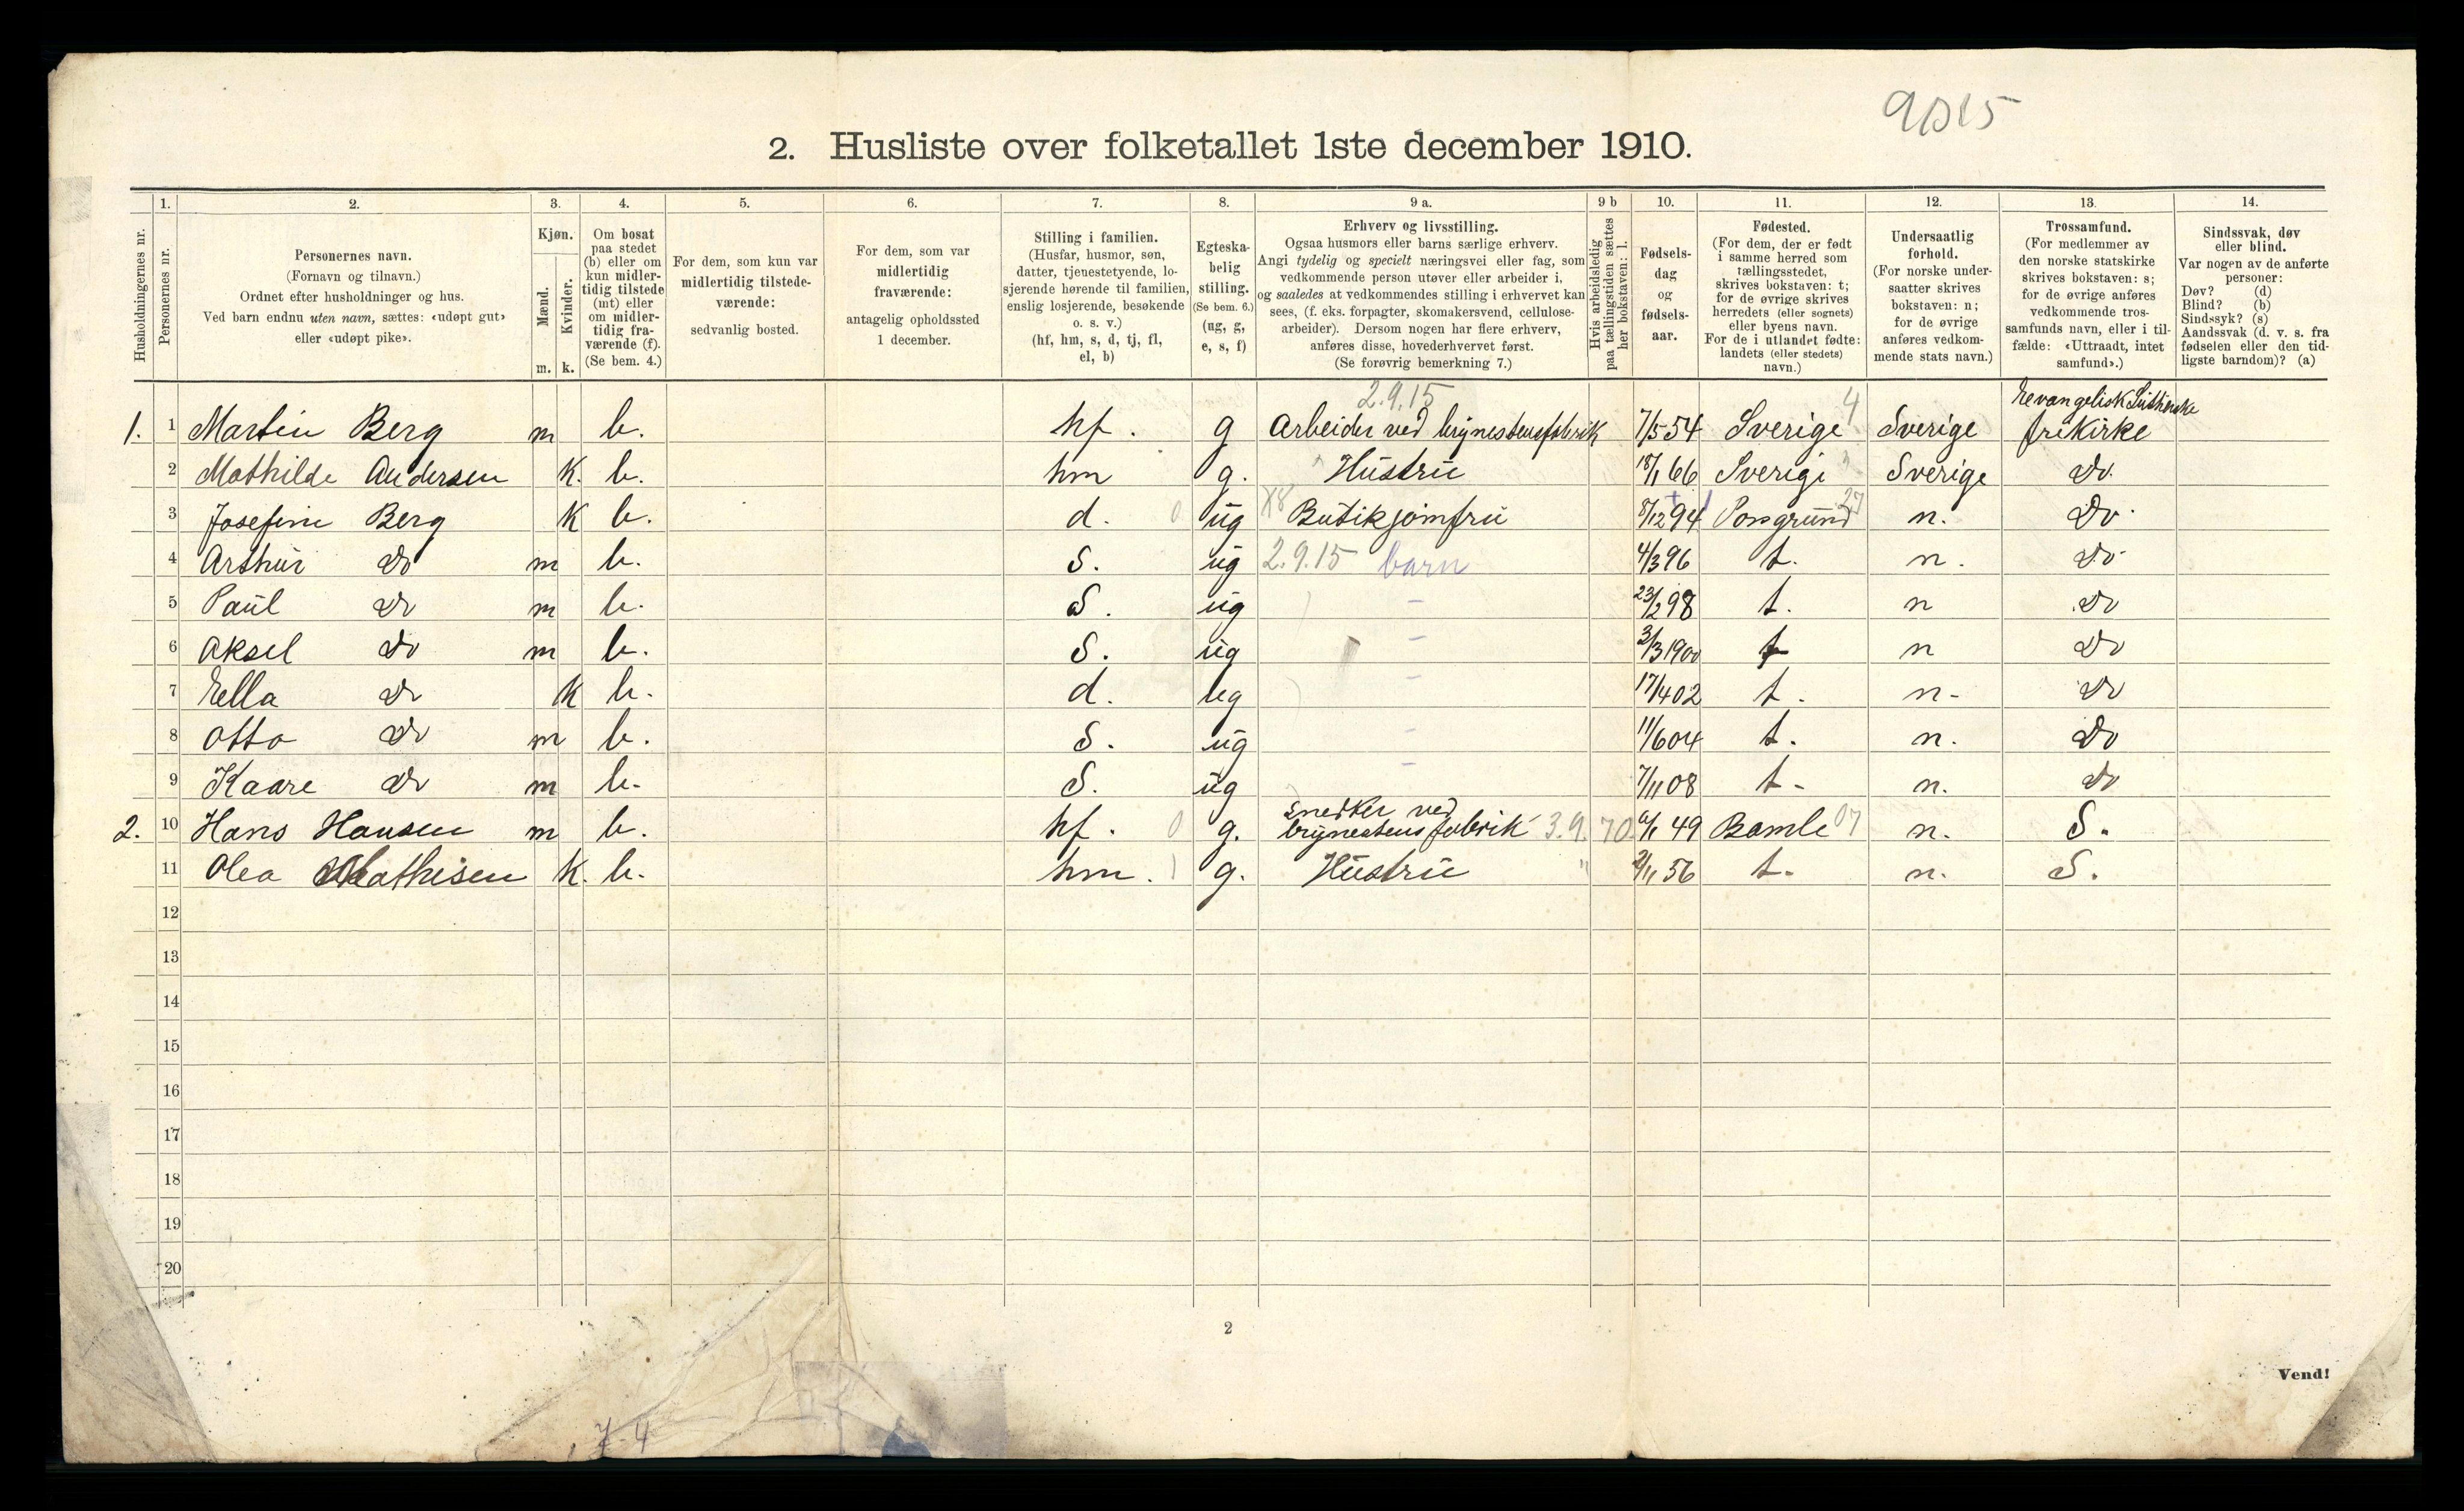 9015
2. Husliste over folketallet 1ste december 1910.
Husholdningernes nr.
1.
Personernes nr.
2.
Personernes navn.
(Fornavn og tilnavn.)
Ordnet efter husholdninger og hus.
Ved barn endnu uten navn, sættes: «udøpt gut»
eller «udøpt pike».
3.
Kjøn.
Mænd.
Kvinder.
m. k.
4.
Om bosat
paa stedet
(b) eller om
kun midler-
tidig tilstede
(mt) eller
om midler-
tidig fra-
værende (f).
(Se bem. 4.)
5.
For dem, som kun var
midlertidig tilstede-
værende:
sedvanlig bosted.
6.
For dem, som var
midlertidig
fraværende:
antagelig opholdssted
1 december.
7.
Stilling i familien.
(Husfar, husmor, søn,
datter, tjenestetyende, lo-
sjerende hørende til familien,
enslig losjerende, besøkende
o. s. v.)
(hf, hm, s, d, tj, fl,
el, b)
8.
Egteska-
belig
stilling.
(Se bem. 6.)
(ug, g,
e, s, f)
9 a.
Erhverv og livsstilling.
Ogsaa husmors eller barns særlige erhverv.
Angi tydelig og specielt næringsvei eller fag, som
vedkommende person utøver eller arbeider i,
og saaledes at vedkommendes stilling i erhvervet kan
sees, (f. eks. forpagter, skomakersvend, cellulose-
arbeider). Dersom nogen har flere erhverv,
anføres disse, hovederhvervet først.
(Se forøvrig bemerkning 7.)
9 b
Hvis arbeidsledig
paa tællingstiden sættes
her bokstaven: l.
10.
Fødsels-
dag
og
fødsels-
aar.
11.
Fødested.
(For dem, der er født
i samme herred som
tællingsstedet,
skrives bokstaven: t;
for de øvrige skrives
herredets (eller sognets)
eller byens navn.
For de i utlandet fødte:
landets (eller stedets)
navn.)
12.
Undersaatlig
forhold.
(For norske under-
saatter skrives
bokstaven: n;
for de øvrige
anføres vedkom-
mende stats navn.)
13.
Trossamfund.
(For medlemmer av
den norske statskirke
skrives bokstaven: s;
for de øvrige anføres
vedkommende tros-
samfunds navn, eller i til-
fælde: «Uttraadt, intet
samfund».)
14.
Sindssvak, døv
eller blind.
Var nogen av de anførte
personer:
Døv? (d)
Blind? (b)
Sindssyk? (s)
Aandssvak (d. v. s. fra
fødselen eller den tid-
ligste barndom)? (a)
2.9.15 4 Evangelisk Lutherske
1. 1 Martin Berg m b. hf. g Arbeider ved brynestensfabrik 7/5 54 Sverige Sverige frikirke
2 Mathilde Andersen K. b. hm g. Hustru 18/1 66 Sverige Sverige do.
3 Josefine Berg K b. d. 0 ug X8 Butikjomfru 8/12 94 Porsgrund 27 n. Do.
4 Arthur Do m b. S. ug 2.9.15 barn 4/3 96 t. n. Do
5 Paul Do m b. S. ug - 23/2 98 t. n Do
6 Aksel Do m b. S. ug - 3/3 1900 t n Do
7 Ella Do K b. d. ug - 17/4 02 t. n- Do
8 Otto Do m b. S. ug - 11/6 04 t. n. Do
9 Kaare Do m b. S. ug - 7/11 08 t- n. Do
snedker ved
2. 10 Hans Hansen m b. hf. 0 g. brynestens fabrik 3.9.70 6/1 49 Bamle 07 n. S.
11 Olea Mathisen K. b. hm. g. Hustru " 2/11 56 t. n. S.
12
13
14
15
16
17
18
19
20
2
Vend!
7-4